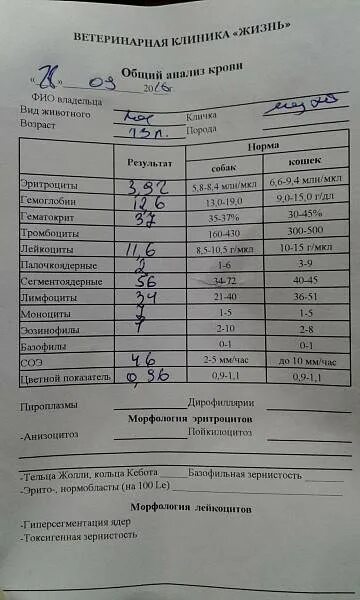 ВЕТЕРИНАРНАЯ КЛИНИКА «ЖИЗНЬ»
Общий анализ крови
«28» 09 2016г
ФИО владельца
Вид животного Кличка
Возраст 13 л. Порода
Результат Норма
собак кошек
Эритроциты 3,92 5,8-8,4 млн/мкл 6,6-9,4 млн/мкл
Гемоглобин 126 13,0-19,0 9,0-15,0 г/дл
Гематокрит 37 35-37% 30-45%
Тромбоциты 160-430 300-500
Лейкоциты 11,6 8,5-10,5 г/мкл 10-15 г/мкл
Палочкоядерные 2 1-6 3-9
Сегментоядерные 56 34-72 40-45
Лимфоциты 34 21-40 36-51
Моноциты 7 1-5 1-5
Эозинофилы 7 2-10 2-8
Базофилы 0-1 0-1
СОЭ 46 2-5 мм/час до 10 мм/час
Цветной показатель 0,96 0,9-1,1 0,9-1,1
Пироплазмы Дирофиллярии
Морфология эритроцитов
-Анизоцитоз Пойкилоцитоз
-Тельца Жолли, кольца Кебота Базофильная зернистость
-Эрито-, нормобласты (на 100 Le)
Морфология лейкоцитов
-Гиперсегментация ядер
-Токсигенная зернистость